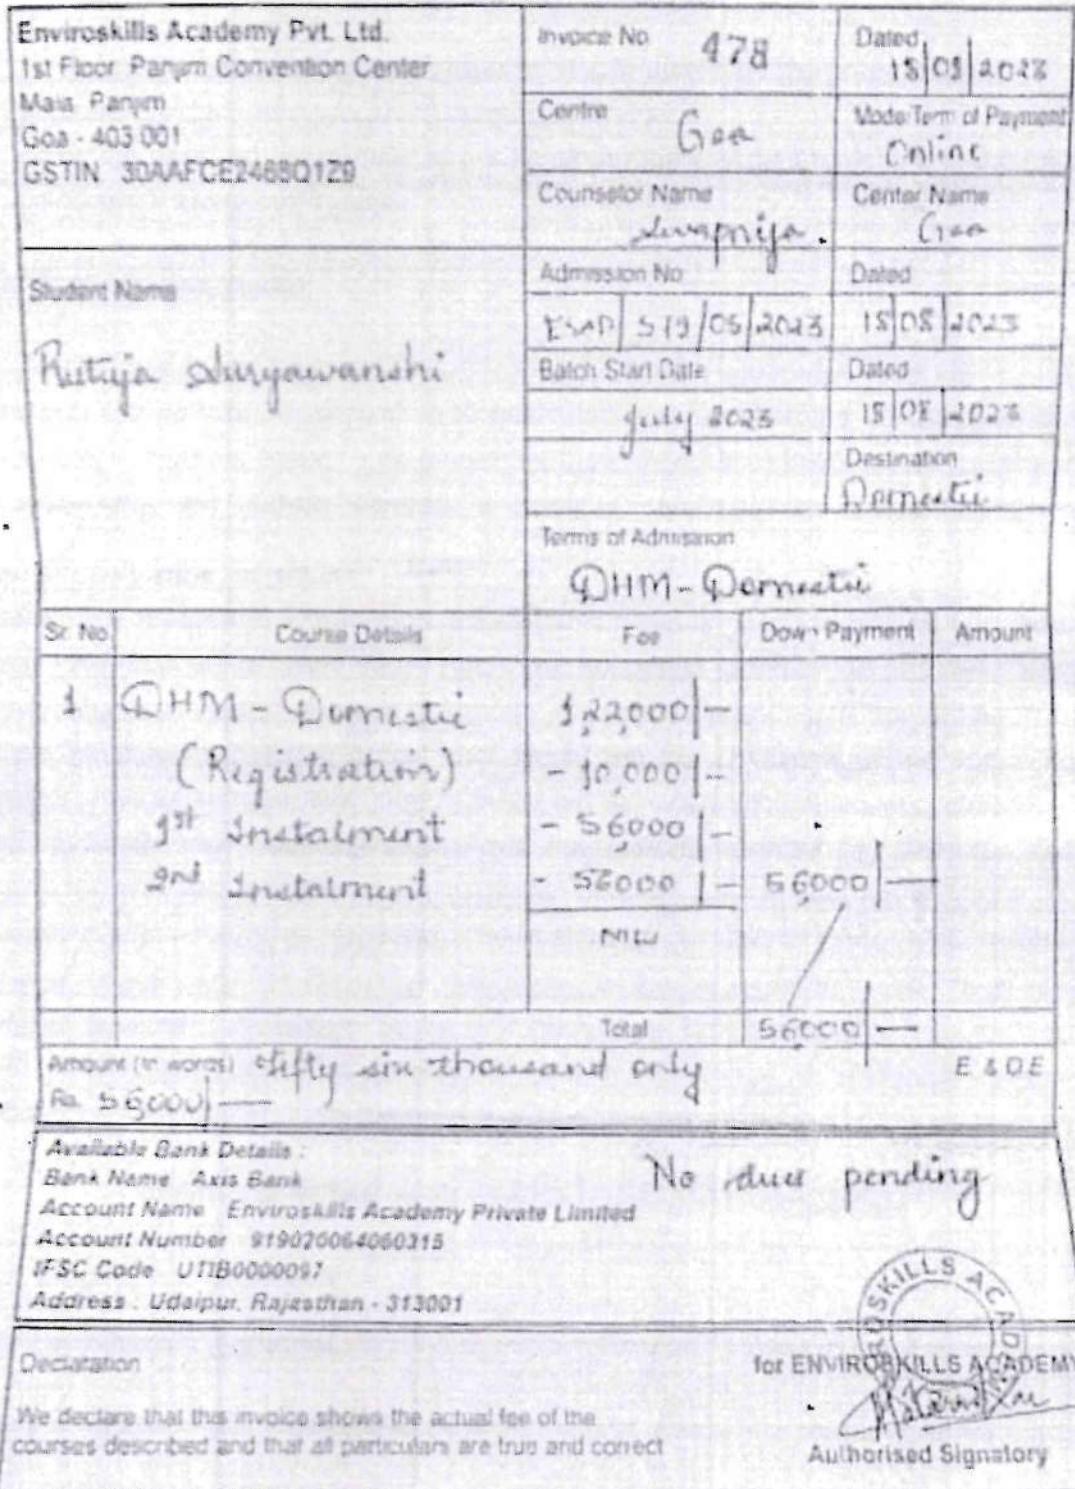 Enviroskills Academy Pvt. Ltd.
1st Floor Panjim Convention Center
Mala Panjim
Goa - 403 001
GSTIN
Invoice No 478
Dated
Centre Goa
Mode/Term of Payment
Online
Counselor Name
Center Name
Goa
Student Name
Rutuja Suryawanshi
Admission No
Dated
519/05/2023
18/08/2023
Batch Start Date
July 2023
Dated
18/08/2023
Destination
Domestic
Terms of Admission
DHM - Domestic
Sr. No. Course Details Fee Down Payment Amount
1 DHM - Domestic 1,22,000/-
(Registration) - 10,000/-
1st Instalment - 56,000/-
2nd Instalment - 56000/- 56,000/-
NIL
Total 56,000/-
Amount (in words) fifty six thousand only E & O E
Rs. 56,000/-
Available Bank Details :
Bank Name Axis Bank
Account Name Enviroskills Academy Private Limited
Account Number 919020064060315
IFSC Code UTIB0000097
Address : Udaipur, Rajasthan - 313001
No dues pending
Declaration
for ENVIROSKILLS ACADEMY
We declare that this invoice shows the actual fee of the
courses described and that all particulars are true and correct
Authorised Signatory